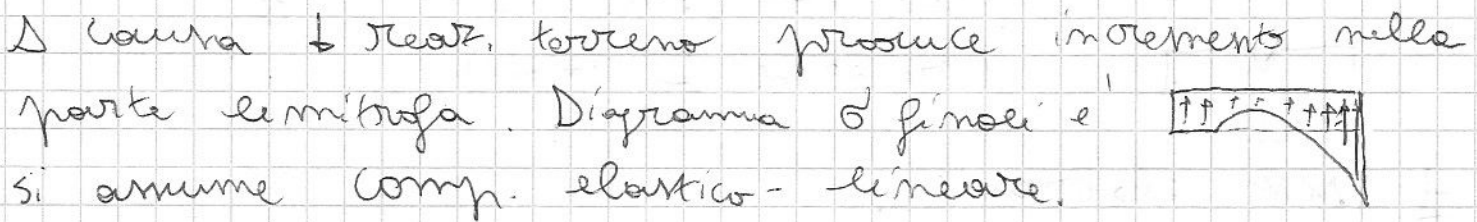 Δ causa ↓ reaz. terreno produce incremento nella
parte limitrofa. Diagramma σ finali è
si assume comp. elastico-lineare.